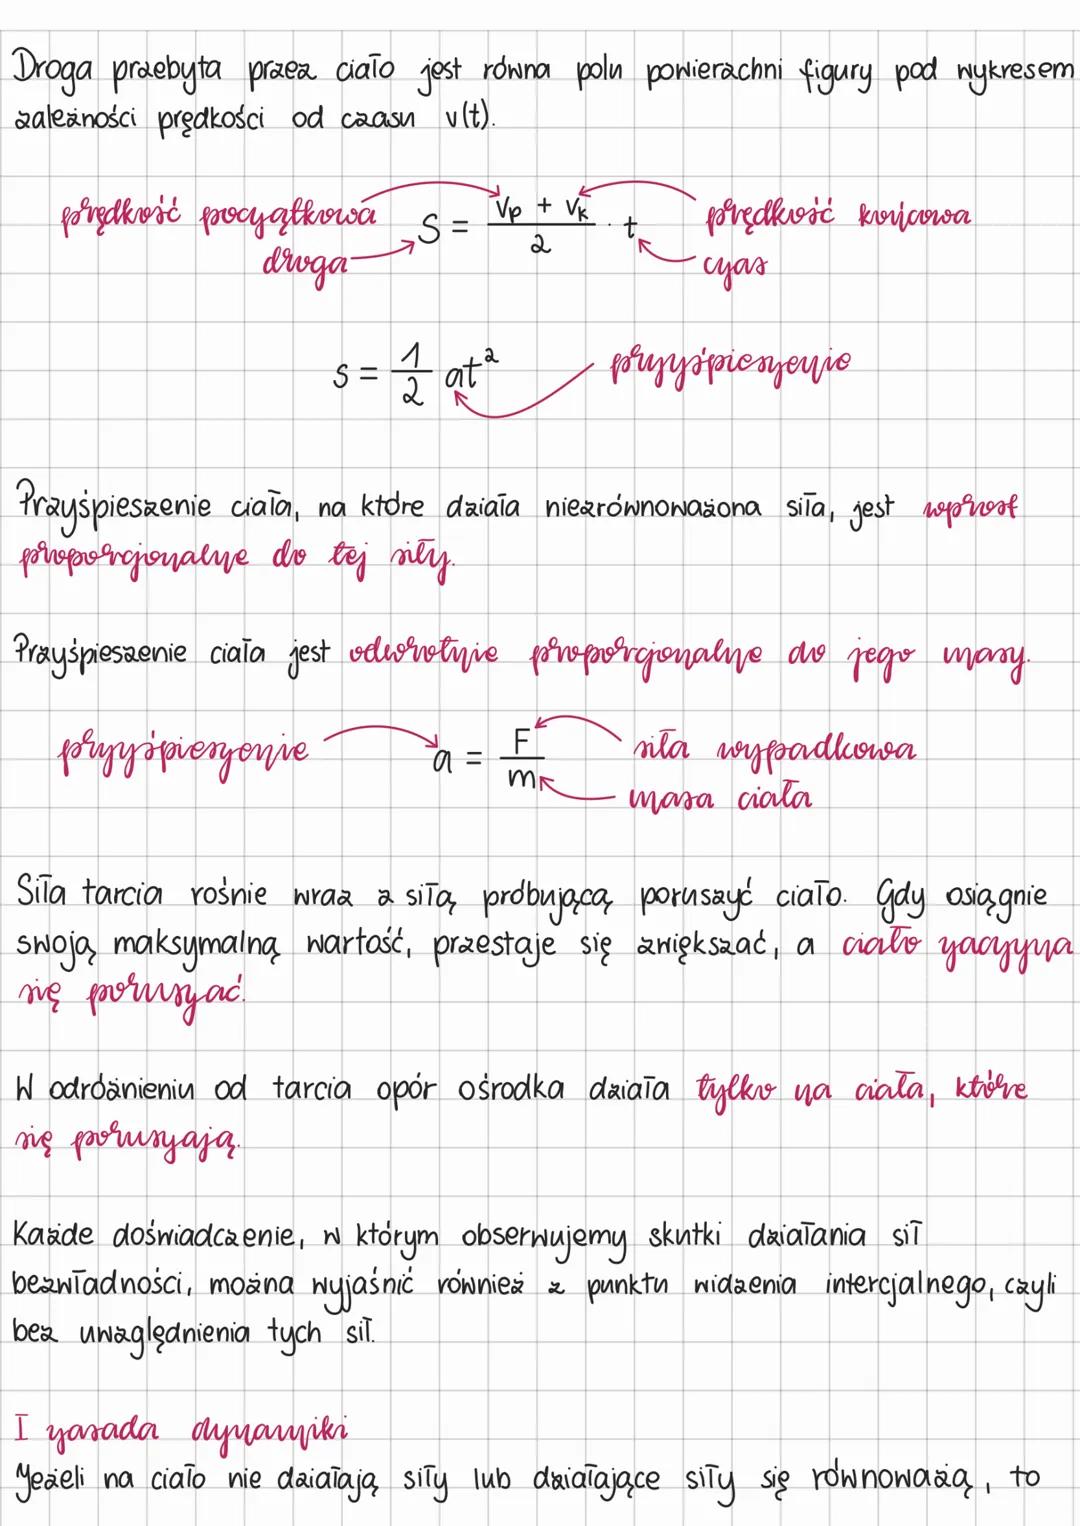 Droga przebyta przez ciało jest równa polu powierzchni figury pod wykresem
zależności prędkości od czasu v(t).
prędkość początkowa
S = (Vp + Vk)/2 · t
prędkość końcowa
droga
czas
s = 1/2 at²
przyśpieszenie
Przyśpieszenie ciała, na które działa niezrównoważona siła, jest wprost
proporcjonalne do tej siły.
Przyśpieszenie ciała jest odwrotnie proporcjonalne do jego masy.
przyśpieszenie
a = F/m
siła wypadkowa
masa ciała
Siła tarcia rośnie wraz z siłą próbującą poruszyć ciało. Gdy osiągnie
swoją maksymalną wartość, przestaje się zwiększać, a ciało zaczyna
się poruszać.
W odróżnieniu od tarcia opór ośrodka działa tylko na ciała, które
się poruszają.
Każde doświadczenie, w którym obserwujemy skutki działania sił
bezwładności, można wyjaśnić również z punktu widzenia intercjalnego, czyli
bez uwzględnienia tych sił.
I zasada dynamiki
Jeżeli na ciało nie działają siły lub działające siły się równoważą, to